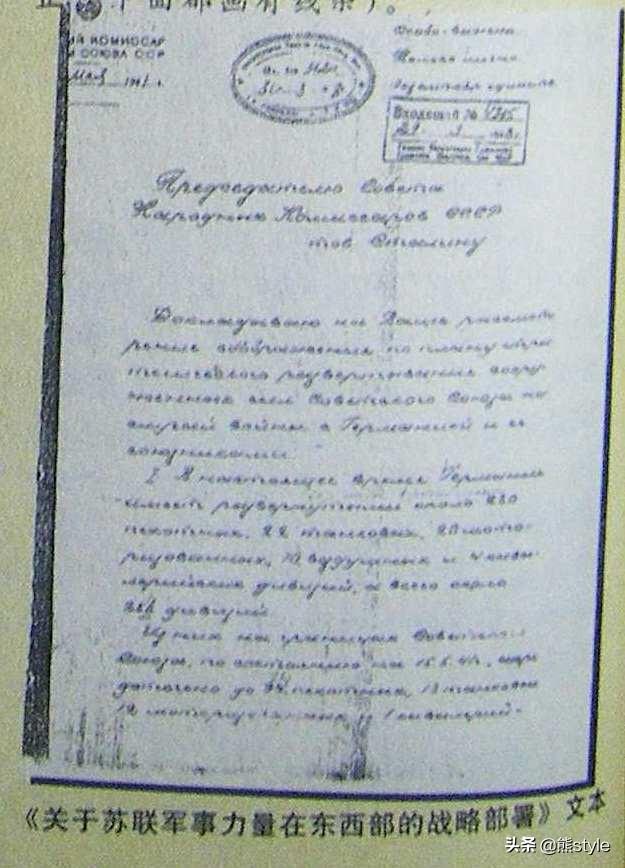 下面都画有线条)。
ИЙ КОМИССАР
СОЮЗА ССР
мая 1941 г.
Особо важно
Только лично
экземпляр
Входящий №
Председателю Совета
Народных Комиссаров СССР
тов Сталину
Докладываю на Ваше рассмот
рение соображения по плану
развертывания воору
женных сил Советского Союза на
случай войны с Германией и ее
союзниками
I В настоящее время Германия
имеет развернутыми около 230
пехотных, 22 танковых, 20 мото-
ризованных, воздушных и 4 кава-
лерийских дивизий, а всего около
дивизий
Из них на границах Советского
Союза, по состоянию на 15.5.41,
до пехотных, 13 танковых
12 моторизованных и 1 кавалерий-
《关于苏联军事力量在东西部的战略部署》文本
头条 @熊style